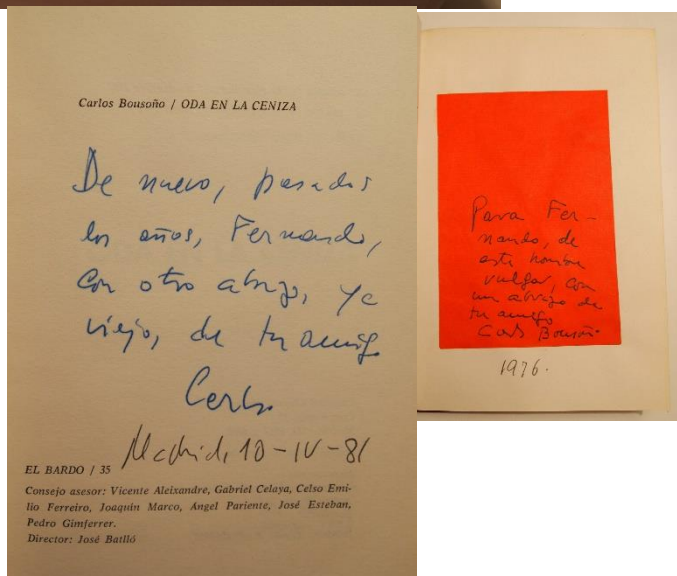 Carlos Bousoño / ODA EN LA CENIZA
De nuevo, pasados
los años, Fernando,
con otro abrazo, ya
viejo, de tu amigo
Carlos
Madrid, 10-IV-81
EL BARDO / 35
Consejo asesor: Vicente Aleixandre, Gabriel Celaya, Celso Emi-
lio Ferreiro, Joaquín Marco, Angel Pariente, José Esteban,
Pedro Gimferrer.
Director: José Batlló
Para Fer-
nando, de
este hombre
vulgar, con
un abrazo de
tu amigo
Carlos Bousoño
1976.